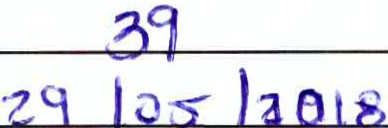 39
29/05/2018